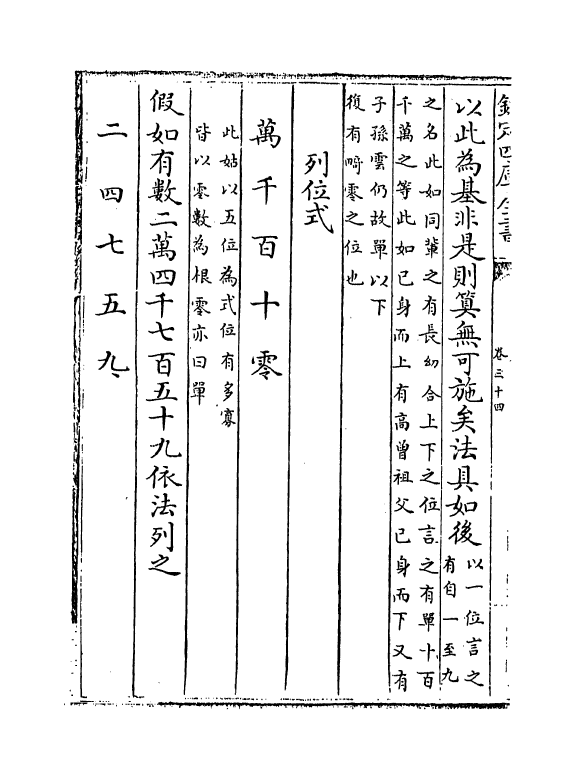 欽定四庫全書
卷三十四
以此為基非是則筭無可施矣法具如後以一位言之
有自一至九
之名此如同輩之有長幼合上下之位言之有單十百
千萬之等此如已身而上有高曾祖父已身而下又有
子孫雲仍故單以下
復有畸零之位也
列位式
萬千百十零
此姑以五位為式位有多寡
皆以零數為根零亦曰單
假如有數二萬四千七百五十九依法列之
二四七五九